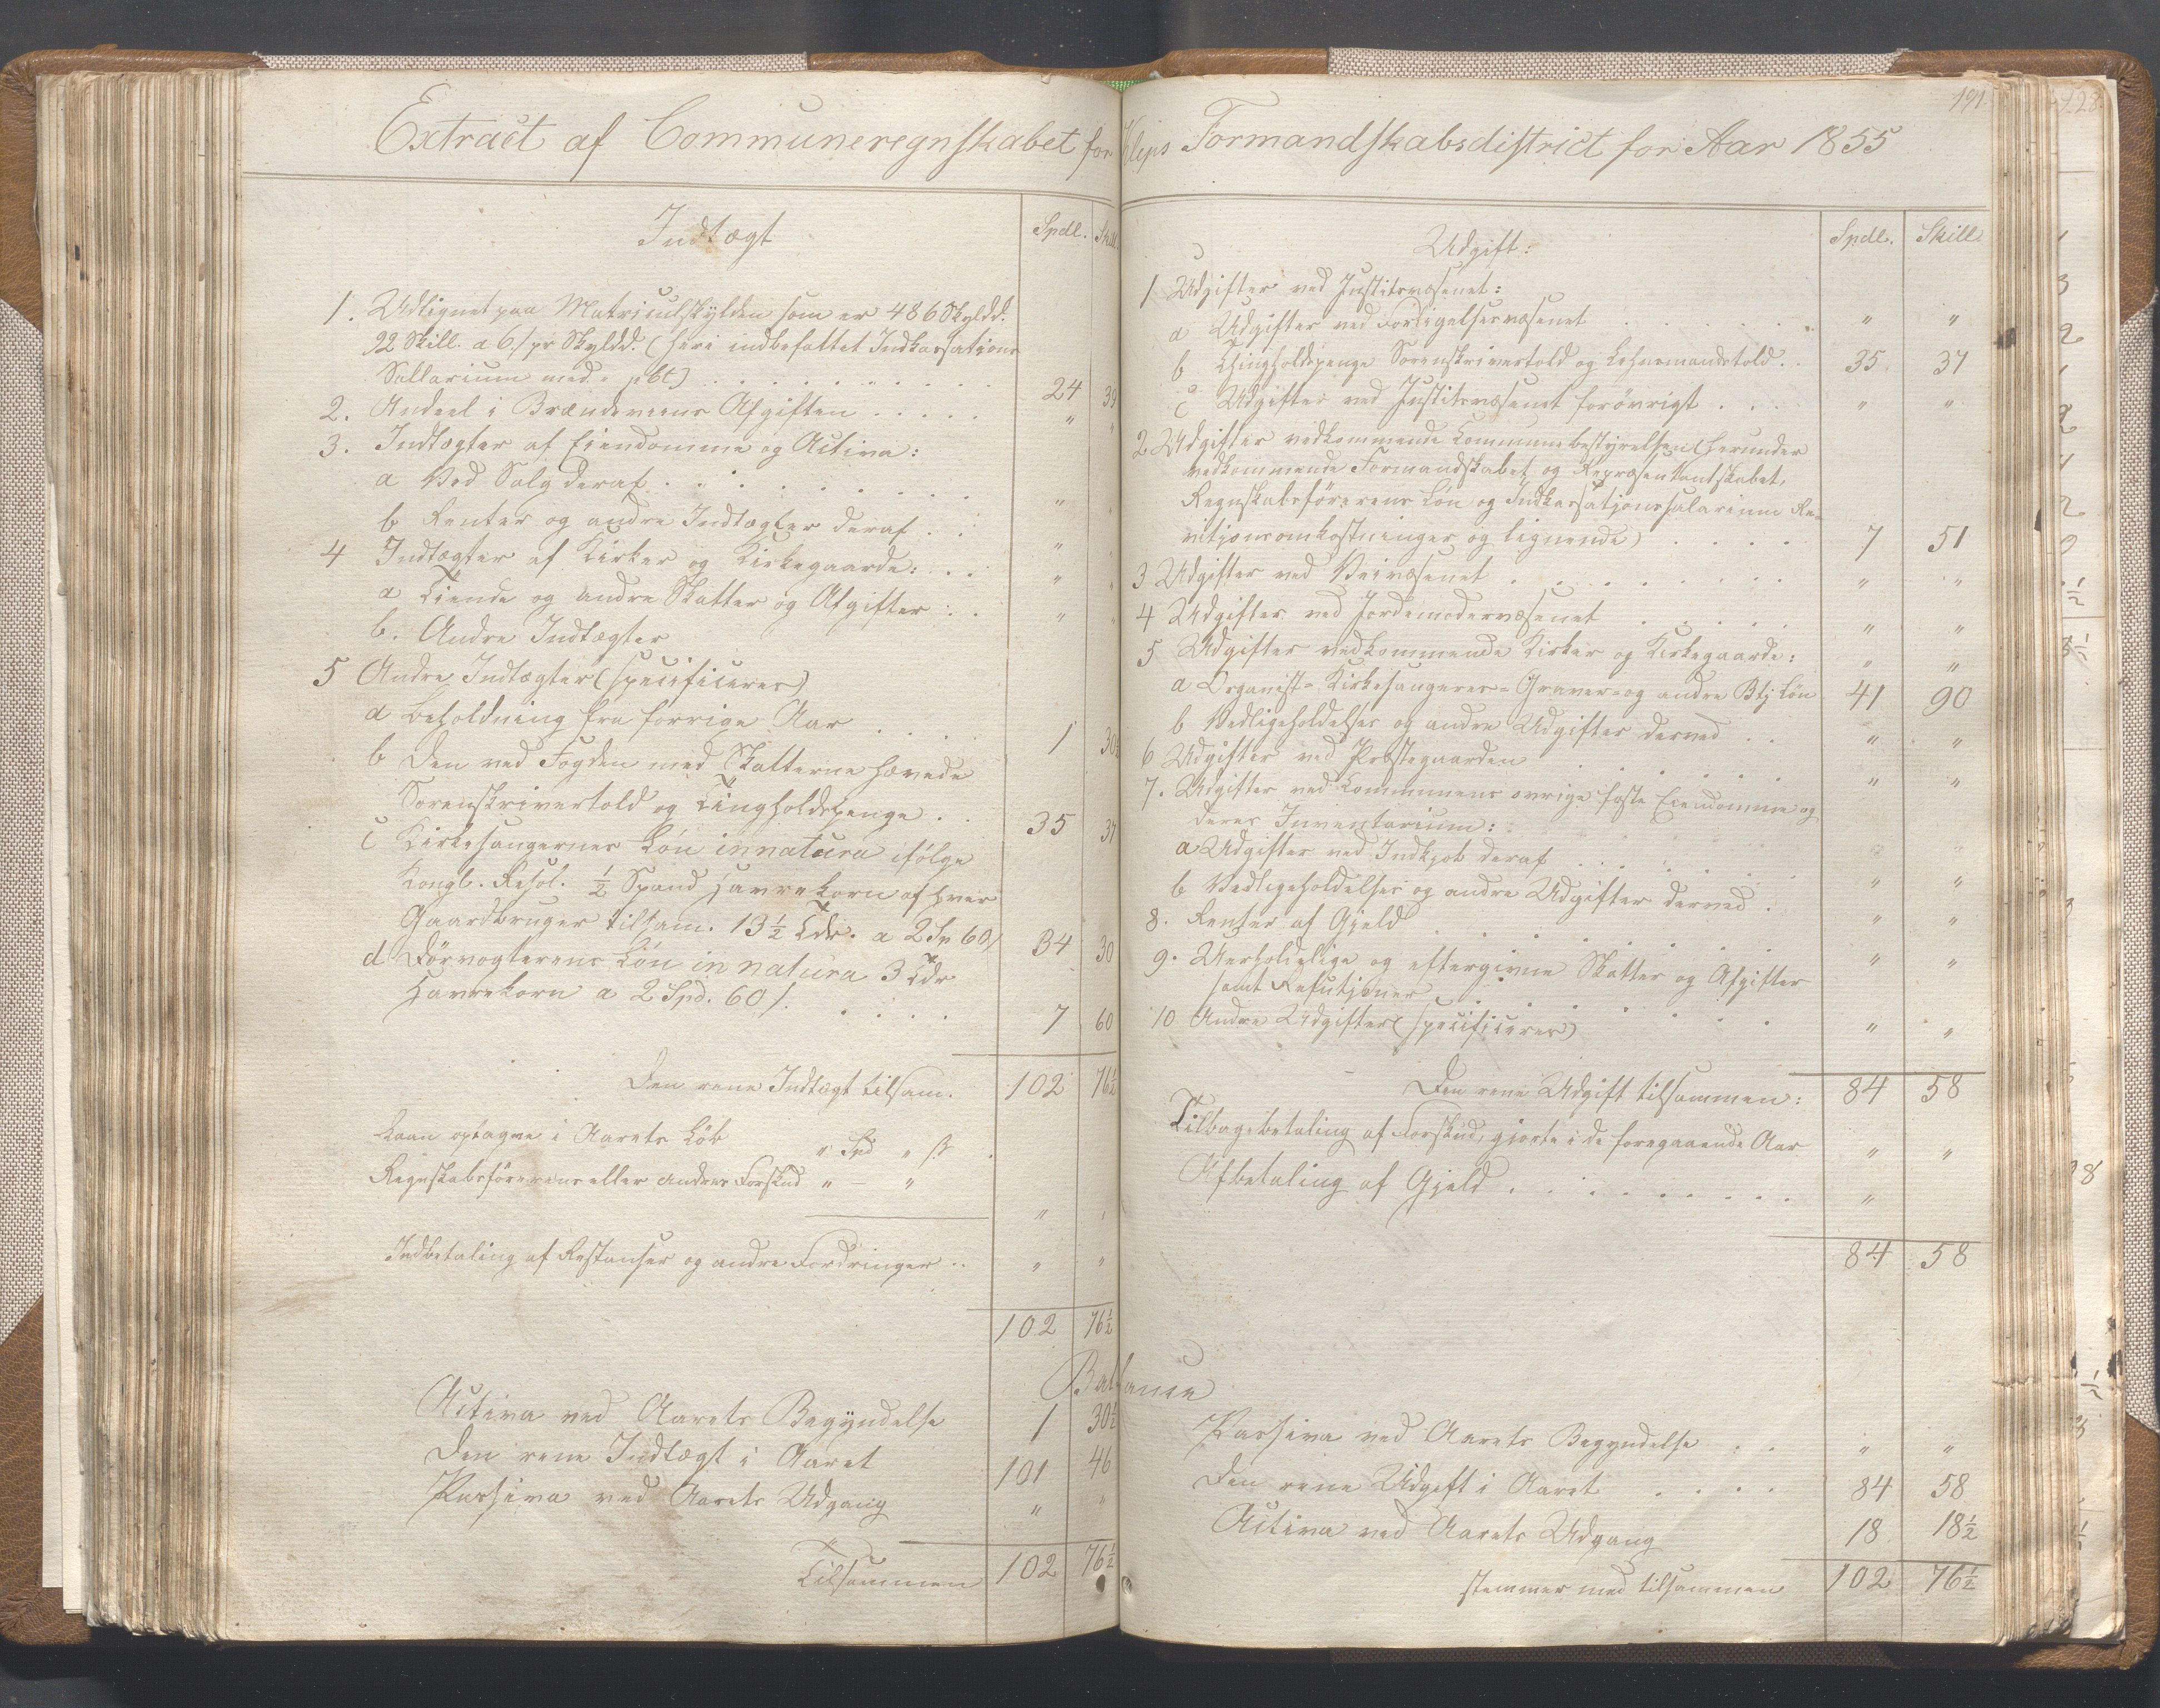 191.
Extract af Communeregnskabet for Kleps Formandskabsdistrict for Aar 1855
Indtægt Spdl. Skill
1. Udlignet paa Matriculskylden som er 486 Skyldd.
92 Skill. a 6 s pr Skyldd. (heri indbefattet Indkassations
Sallarium med pCt) . . . . . . 24 39
2. Andeel i Brændeviens Afgiften . . . . . " "
3. Indtægter af Eiendomme og Activa:
a Ved Salg deraf . . . . . . " "
b Renter og andre Indtægter deraf . . " "
4 Indtægter af Kirker og Kirkegaarde: . . " "
a Tiende og andre Skatter og Afgifter . . " "
b. Andre Indtægter
5 Andre Indtægter (specificeres)
a Beholdning fra forrige Aar . . . . 1 30½
b Den ved Fogden med Skatterne hævede
Sorenskrivertold og Tingholdspenge . . 35 37
c Kirkesangernes Løn in natura ifølge
Kongl. Resol. ½ Spand Havrekorn af hver
Gaardbruger tilsam. 13½ Tdr. a 2 Sp 60 s 34 30
d Dørvogterens Løn in natura 3 Tdr
Havrekorn a 2 Spd. 60 s. . . . . 7 60
Den rene Indtægt tilsam. 102 76½
Laan optagne i Aarets Løb " Spd " s
Regnskabsførerens eller andres Forskud " – "
" "
Indbetaling af Restanser og andre Fordringer . . " "
102 76½
Udgift: Spdl. Skill.
1 Udgifter ved Justitsvæsenet:
a Udgifter ved Forligelsesvæsenet . . . . . " "
b Thingholdspenge Sorenskrivertold og Lehnsmandstold . . 35 37
c Udgifter ved Justitsvæsenet forøvrigt . . . " "
2 Udgifter vedkommende Communebestyrelsen (herunder
vedkommende Formandskabet og Repræsentantskabet,
Regnskabsførerens Løn og Indkassationssalarium Re-
vitjonsomkostninger og lignende) . . . . 7 51
3 Udgifter ved Veivæsenet . . . . . . . " "
4 Udgifter ved Jordemodervæsenet . . . . . " "
5 Udgifter vedkommende Kirker og Kirkegaarde: " "
a Organist- Kirkesangeres- Graver- og andre Btj Løn 41 90
b Vedligeholdelse og andre Udgifter derved . . " "
6 Udgifter ved Præstegaarden . . . . . . " "
7. Udgifter ved Communens øvrige faste Eiendomme og
deres Inventarium:
a Udgifter ved Indkjøb deraf . . . . . . " "
b Vedligeholdelse og andre Udgifter derved . " "
8. Renter af Gjeld . . . . . . . . " "
9. Uerholdelige og eftergivne Skatter og Afgifter
samt Refusjoner . . . . . . .
10 Andre Udgifter (specificeres) " "
Den rene Udgift tilsammen: 84 58
Tilbagebetaling af Forskud, gjorte i de foregaaende Aar " "
Afbetaling af Gjeld . . . . . . . . "
84 58
Ballance
Activa ved Aarets Begyndelse 1 30½
Den rene Indtægt i Aaret 101 46
Passiva ved Aarets Udgang " "
Tilsammen 102 76½
Passiva ved Aarets Begyndelse . . " "
Den rene Udgift i Aaret . . . . 84 58
Activa ved Aarets Udgang 18 18½
stemmer med tilsammen 102 76½